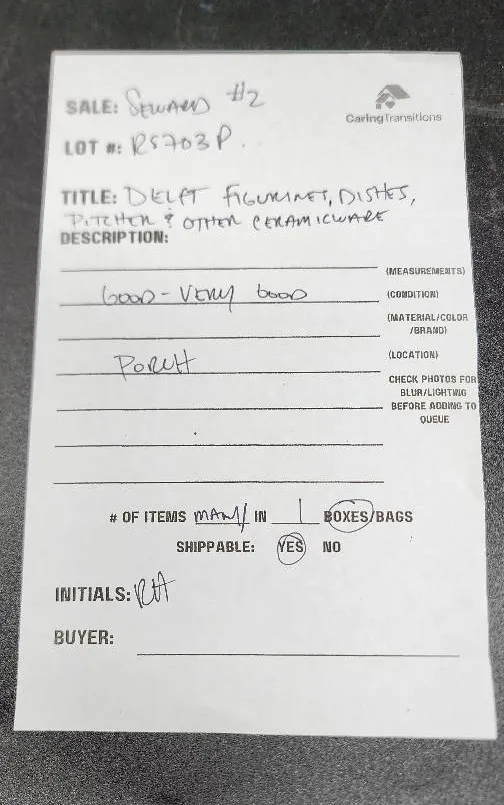 SALE: SEWARD #2
CaringTransitions
LOT #: RS703P.
TITLE: DELFT FIGURINES, DISHES,
PITCHER & OTHER CERAMICWARE
DESCRIPTION:
(MEASUREMENTS)
GOOD-VERY GOOD (CONDITION)
(MATERIAL/COLOR
/BRAND)
PORCH (LOCATION)
CHECK PHOTOS FOR
BLUR/LIGHTING
BEFORE ADDING TO
QUEUE
# OF ITEMS MANY IN 1 BOXES/BAGS
SHIPPABLE: YES NO
INITIALS: RH
BUYER: